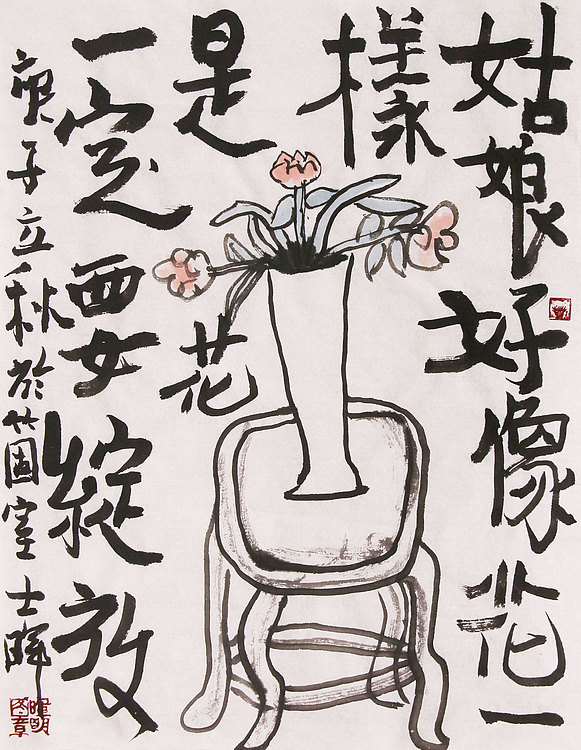 姑娘好像花一
樣
是
花
一定要綻放
庚子立秋於竹園室士暉